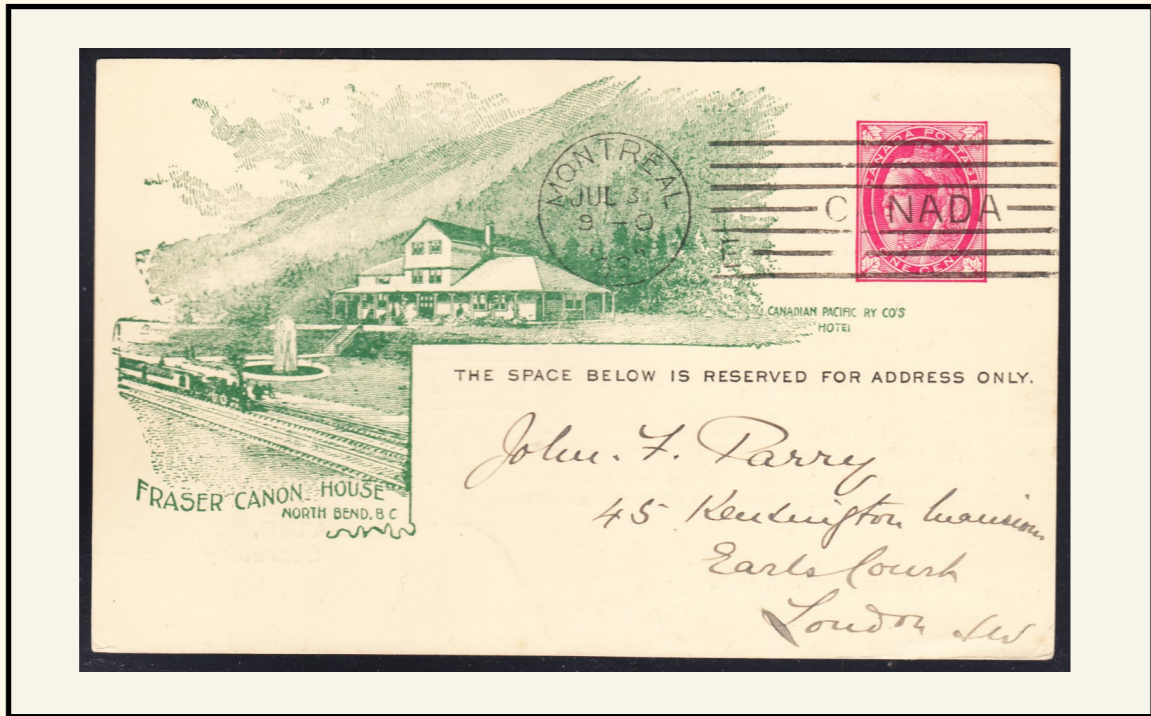 MONTREAL
JUL 3
9 - 0
CANADA POSTAGE
C NADA
ONE CENT
CANADIAN PACIFIC RY CO'S
HOTEL
THE SPACE BELOW IS RESERVED FOR ADDRESS ONLY.
John. F. Parry
45 Kensington Mansions
Earls Court
London SW
FRASER CANON HOUSE
NORTH BEND, B C